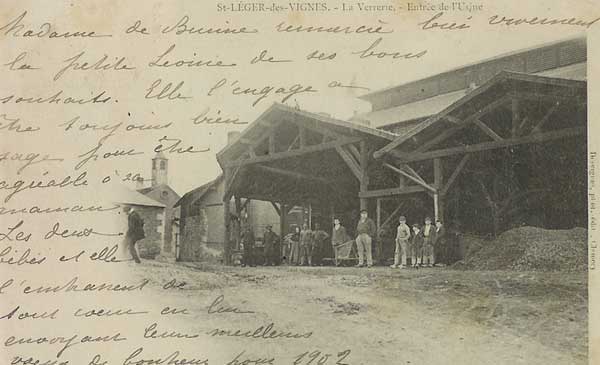 St-LÉGER-des-VIGNES. - La Verrerie. - Entrée de l'Usine
Madame de remercie bien vivement
la petite Léonie de ses bons
souhaits. Elle l'engage a
être toujours bien
sage pour être
agréable à sa
maman.
Les deux
bébés et elle
l'embrassent de
tout cœur en lui
envoyant leurs meilleurs
vœux de bonheur pour 1902
phot. édit. - Clamecy